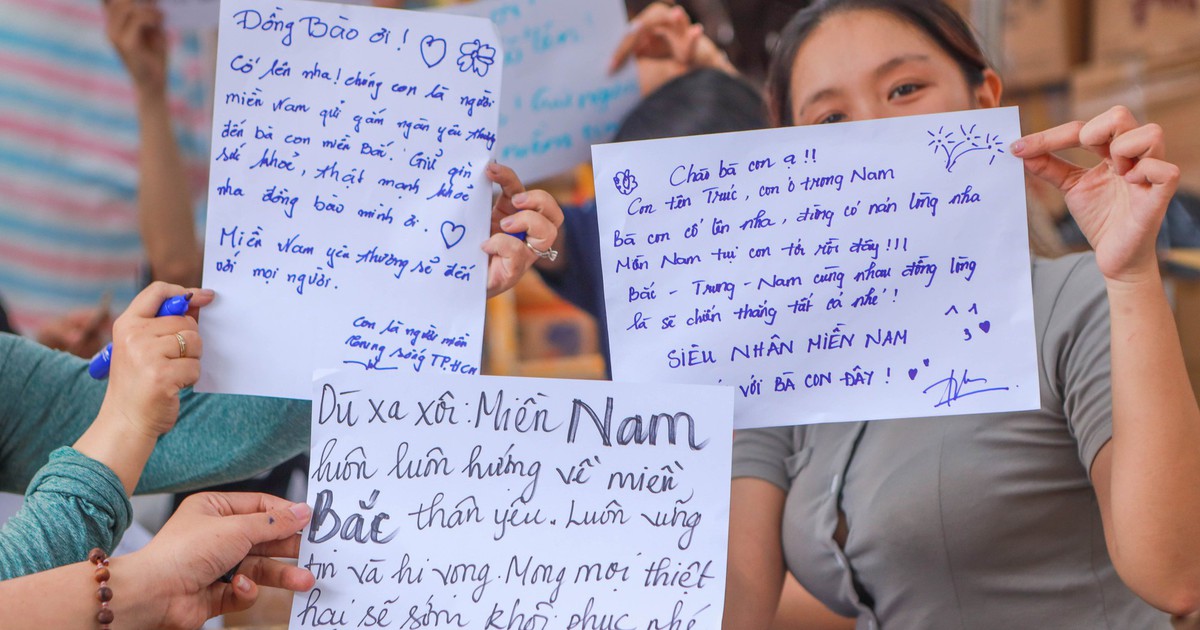 Đồng Bào ơi!
Cố lên nha! chúng con là người
miền Nam gửi gắm ngàn yêu thương
đến bà con miền Bắc. Giữ gìn
sức khoẻ, thật mạnh khoẻ
nha đồng bào mình ơi.
Miền Nam yêu thương sẽ đến
với mọi người.
Con là người miền
Trung sống TP.HCM
Chào bà con ạ!!
Con tên Trúc, con ở trong Nam
Bà con cố lên nha, đừng có nản lòng nha
Miền Nam tụi con tới rồi đây!!!
Bắc - Trung - Nam cùng nhau đồng lòng
là sẽ chiến thắng tất cả nhé!
SIÊU NHÂN MIỀN NAM
VỚI BÀ CON ĐÂY!
Dù xa xôi: Miền Nam
luôn luôn hướng về miền
Bắc thân yêu. Luôn vững
tin và hi vọng. Mong mọi thiệt
hại sẽ sớm khôi phục nhé